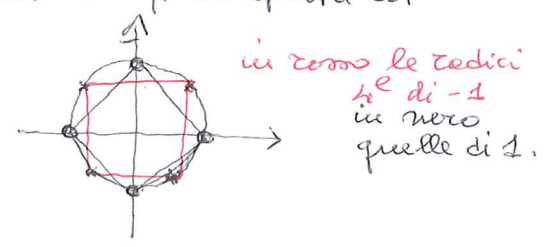 in rosso le radici
4e di -1
in nero
quelle di 1.